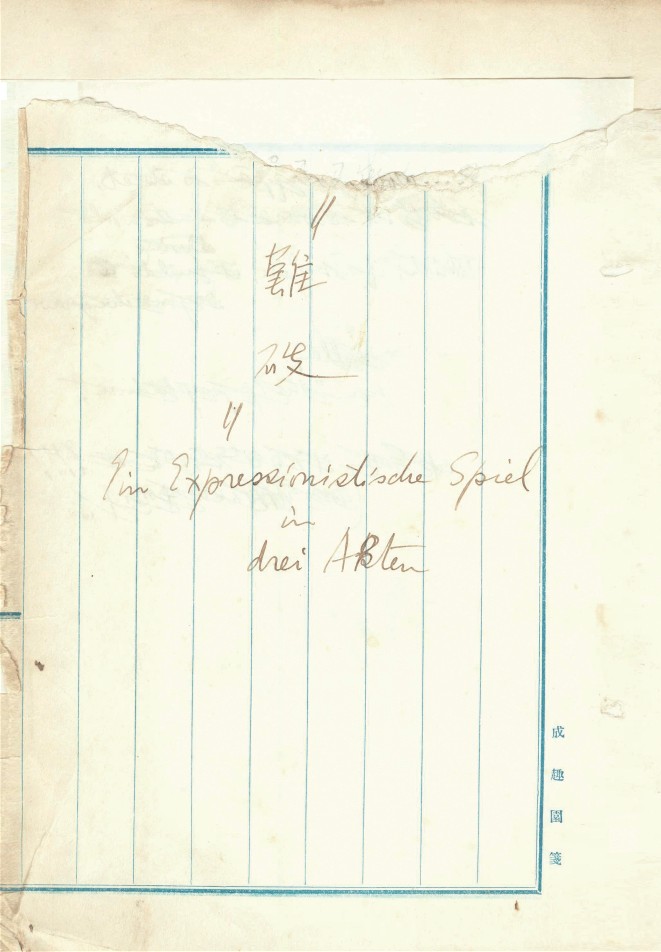 "
難
破
"
Ein Expressionistische Spiel
in
drei Akten
成趣園箋